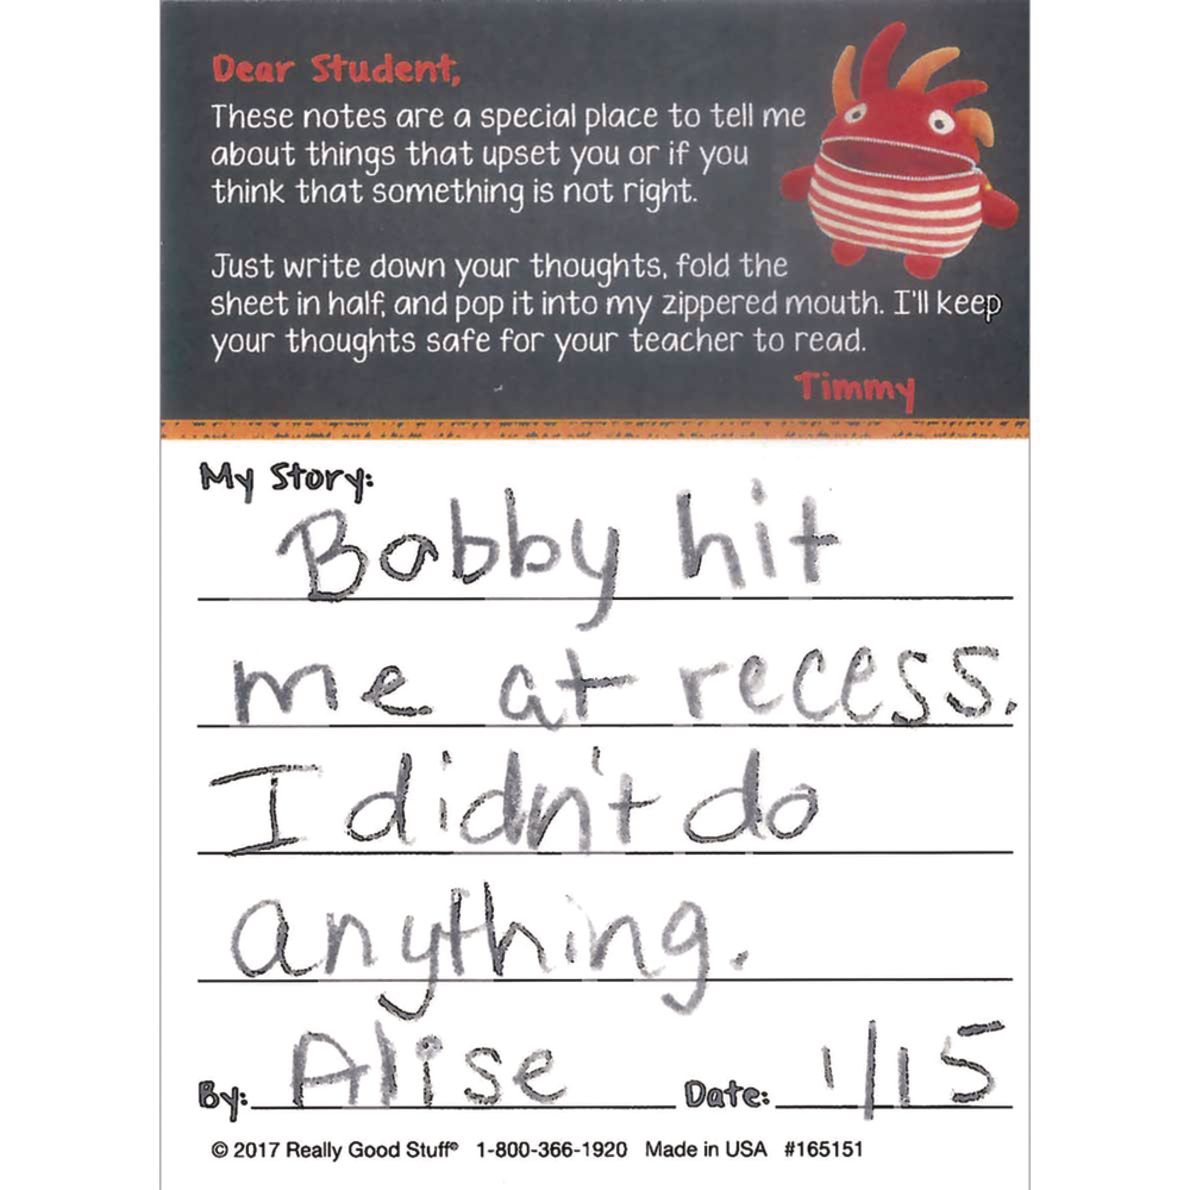 Dear Student,
These notes are a special place to tell me
about things that upset you or if you
think that something is not right.
Just write down your thoughts, fold the
sheet in half, and pop it into my zippered mouth. I'll keep
your thoughts safe for your teacher to read.
Timmy
My Story:
Bobby hit
me at recess.
I didn't do
anything.
By: Alise Date: 1/15
© 2017 Really Good Stuff® 1-800-366-1920 Made in USA #165151